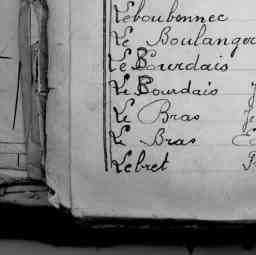 Leboubennec
Le Boulanger
Le Bourdais
Le Bourdais
Le Bras
Le Bras
Lebret